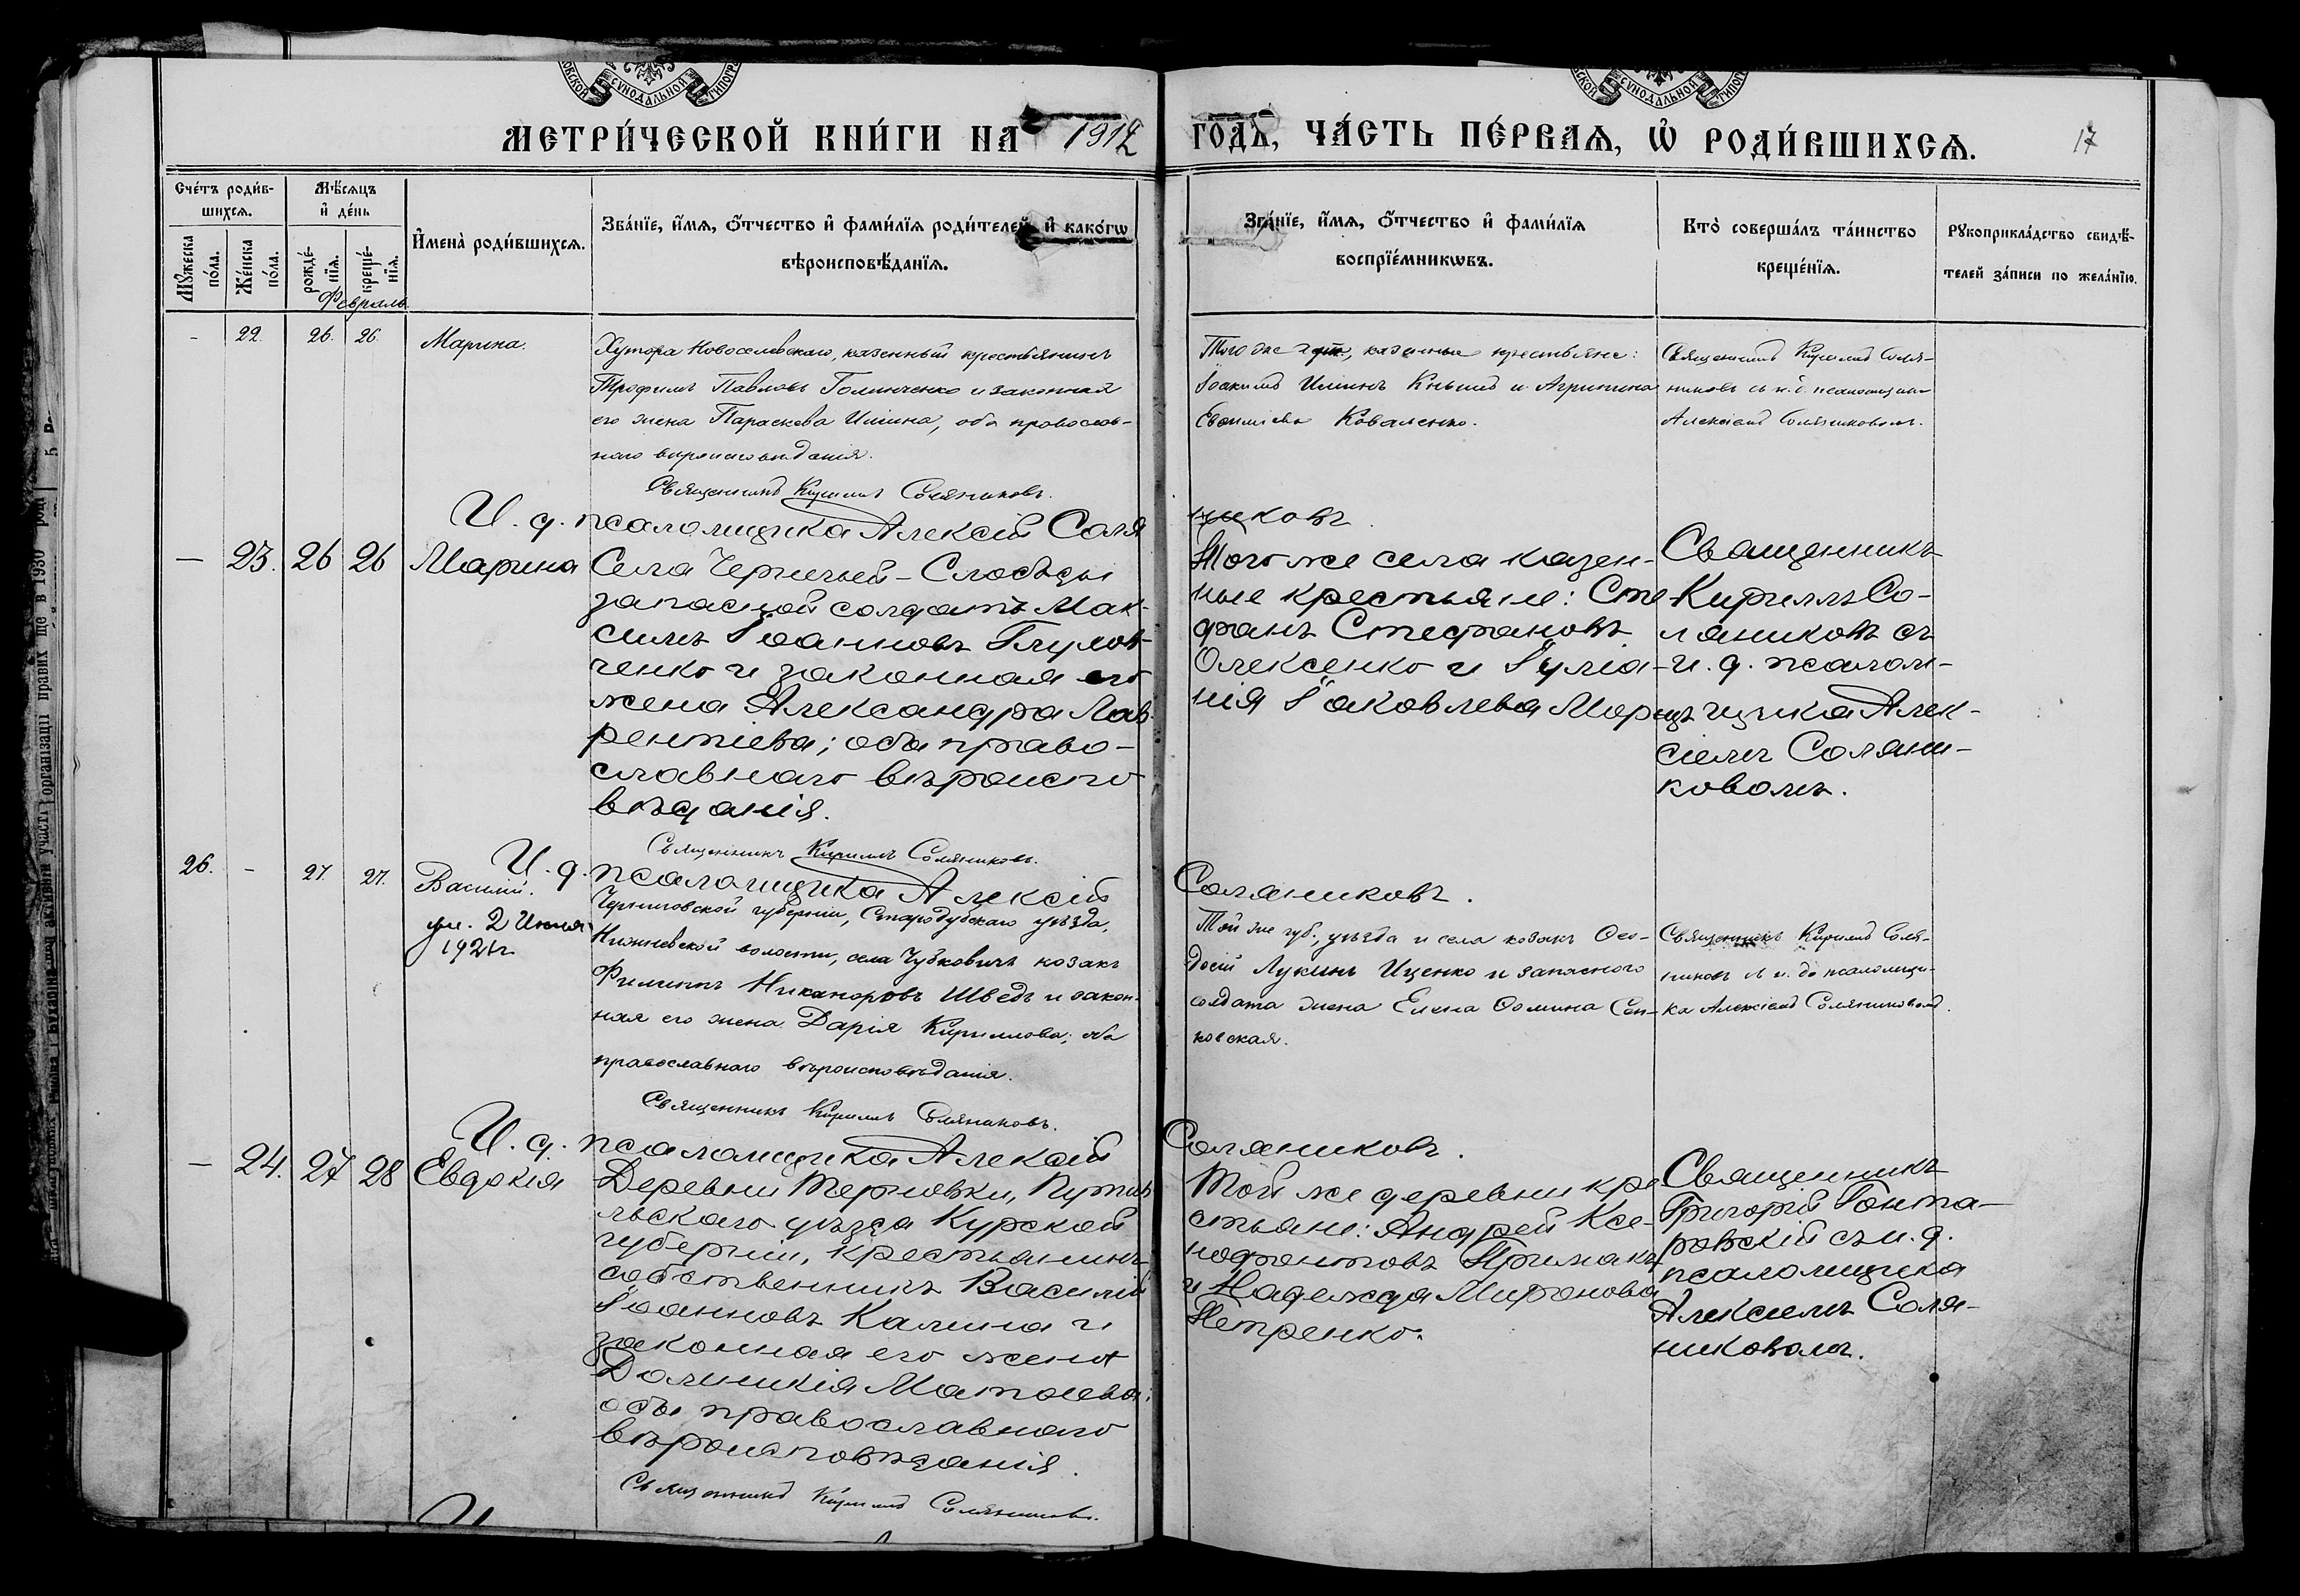 МОСКОВСКОЙ СѴНОДАЛЬНОЙ ТИПОГРА
МОСКОВСКОЙ СѴНОДАЛЬНОЙ ТИПОГРА
МЕТРИ́ЧЕСКОЙ КНИ́ГИ НА 1912 ГОДЪ, ЧА́СТЬ ПЕ́РВАѦ, Ѡ҆ РОДИ́ВШИХСѦ.
17
Сче́тъ роди́в-
шихсѧ.
Мꙋ́жеска
по́ла.
Же́нска
по́ла.
Мѣ́сѧцъ
и҆ де́нь
рожде́-
нїѧ.
креще́-
нїѧ.
Февраль.
И҆мена̀ роди́вшихсѧ.
Зва́нїе, и҆́мѧ, ѻ҆́тчество и҆ фами́лїѧ роди́телей, и҆ како́гѡ
вѣроисповѣ́данїѧ.
Зва́нїе, и҆́мѧ, ѻ҆́тчество и҆ фами́лїѧ
воспрїе́мникѡвъ.
Кто̀ соверша́лъ та́инство
креще́нїѧ.
Рꙋкоприкла́дство свидѣ́-
телей за́писи по жела́нїю.
- 22. 26. 26. Марина.
Хутора Новоселовскаго, казенный крестьянинъ
Трофимъ Павловъ Голинченко и законная
его жена Параскева Ильина, оба православ-
наго вѣроисповѣданія.
Священникъ Кириллъ Соляниковъ.
И. д. псаломщика Алексій Соля
никовъ.
Того же хут., казенные крестьяне:
Іоакимъ Ильинъ Кнышъ и Агрипина
Евфиміева Коваленко.
Священникъ Кириллъ Соля-
никовъ съ и. д. псаломщика
Алексіемъ Соляниковымъ.
— 23. 26 26 Марина
Села Черничьей-Слободы
запасной солдатъ Мак-
симъ Іоанновъ Глухов-
ченко и законная его
жена Александра Лав-
рентіева; оба право-
славнаго вѣроиспо-
вѣданія.
Священникъ Кириллъ Соляниковъ.
И. д. псаломщика Алексій
Соляниковъ.
Того же села казен-
ные крестьяне: Сте-
фанъ Стефановъ
Олексенко и Іулiа-
нія Іаковлева Морозъ
Священникъ
Кириллъ Со-
ляниковъ съ
и. д. псалом-
щика Алек-
сіемъ Соляни-
ковомъ.
26. - 27. 27. Василій.
ум. 2 Июня
1921г.
Черниговской губерніи, Стародубскаго уѣзда,
волости, села Чубковичъ козакъ
Филиппъ Никаноровъ Шведъ и закон-
ная его жена Дарія Кириллова; оба
православнаго вѣроисповѣданія.
Священникъ Кириллъ Соляниковъ.
И. д. псаломщика Алексій
Соляниковъ.
Той же губ., уѣзда и села козакъ Ѳео-
досій Лукинъ Иценко и запасного
солдата жена Елена Ѳомина Сен-
ковская.
Священникъ Кириллъ Соля-
никовъ съ и. д. псаломщи-
ка Алексіемъ Соляниковымъ.
— 24. 27 28 Евдокія
Деревни Терновки, Путив-
льскаго уѣзда Курской
губерніи, крестьянинъ-
собственникъ Василій
Іоанновъ Калина и
законная его жена
Домникія Матѳеева;
оба православнаго
вѣроисповѣданія.
Священникъ Кириллъ Соляниковъ.
Той же деревни кре-
стьяне: Андрей Ксе-
нофонтовъ Примакъ
и Надежда Миронова
Петренко.
Священникъ
Григорій Гонта-
ровскій съ и. д.
псаломщика
Алексіемъ Соля-
никовомъ.